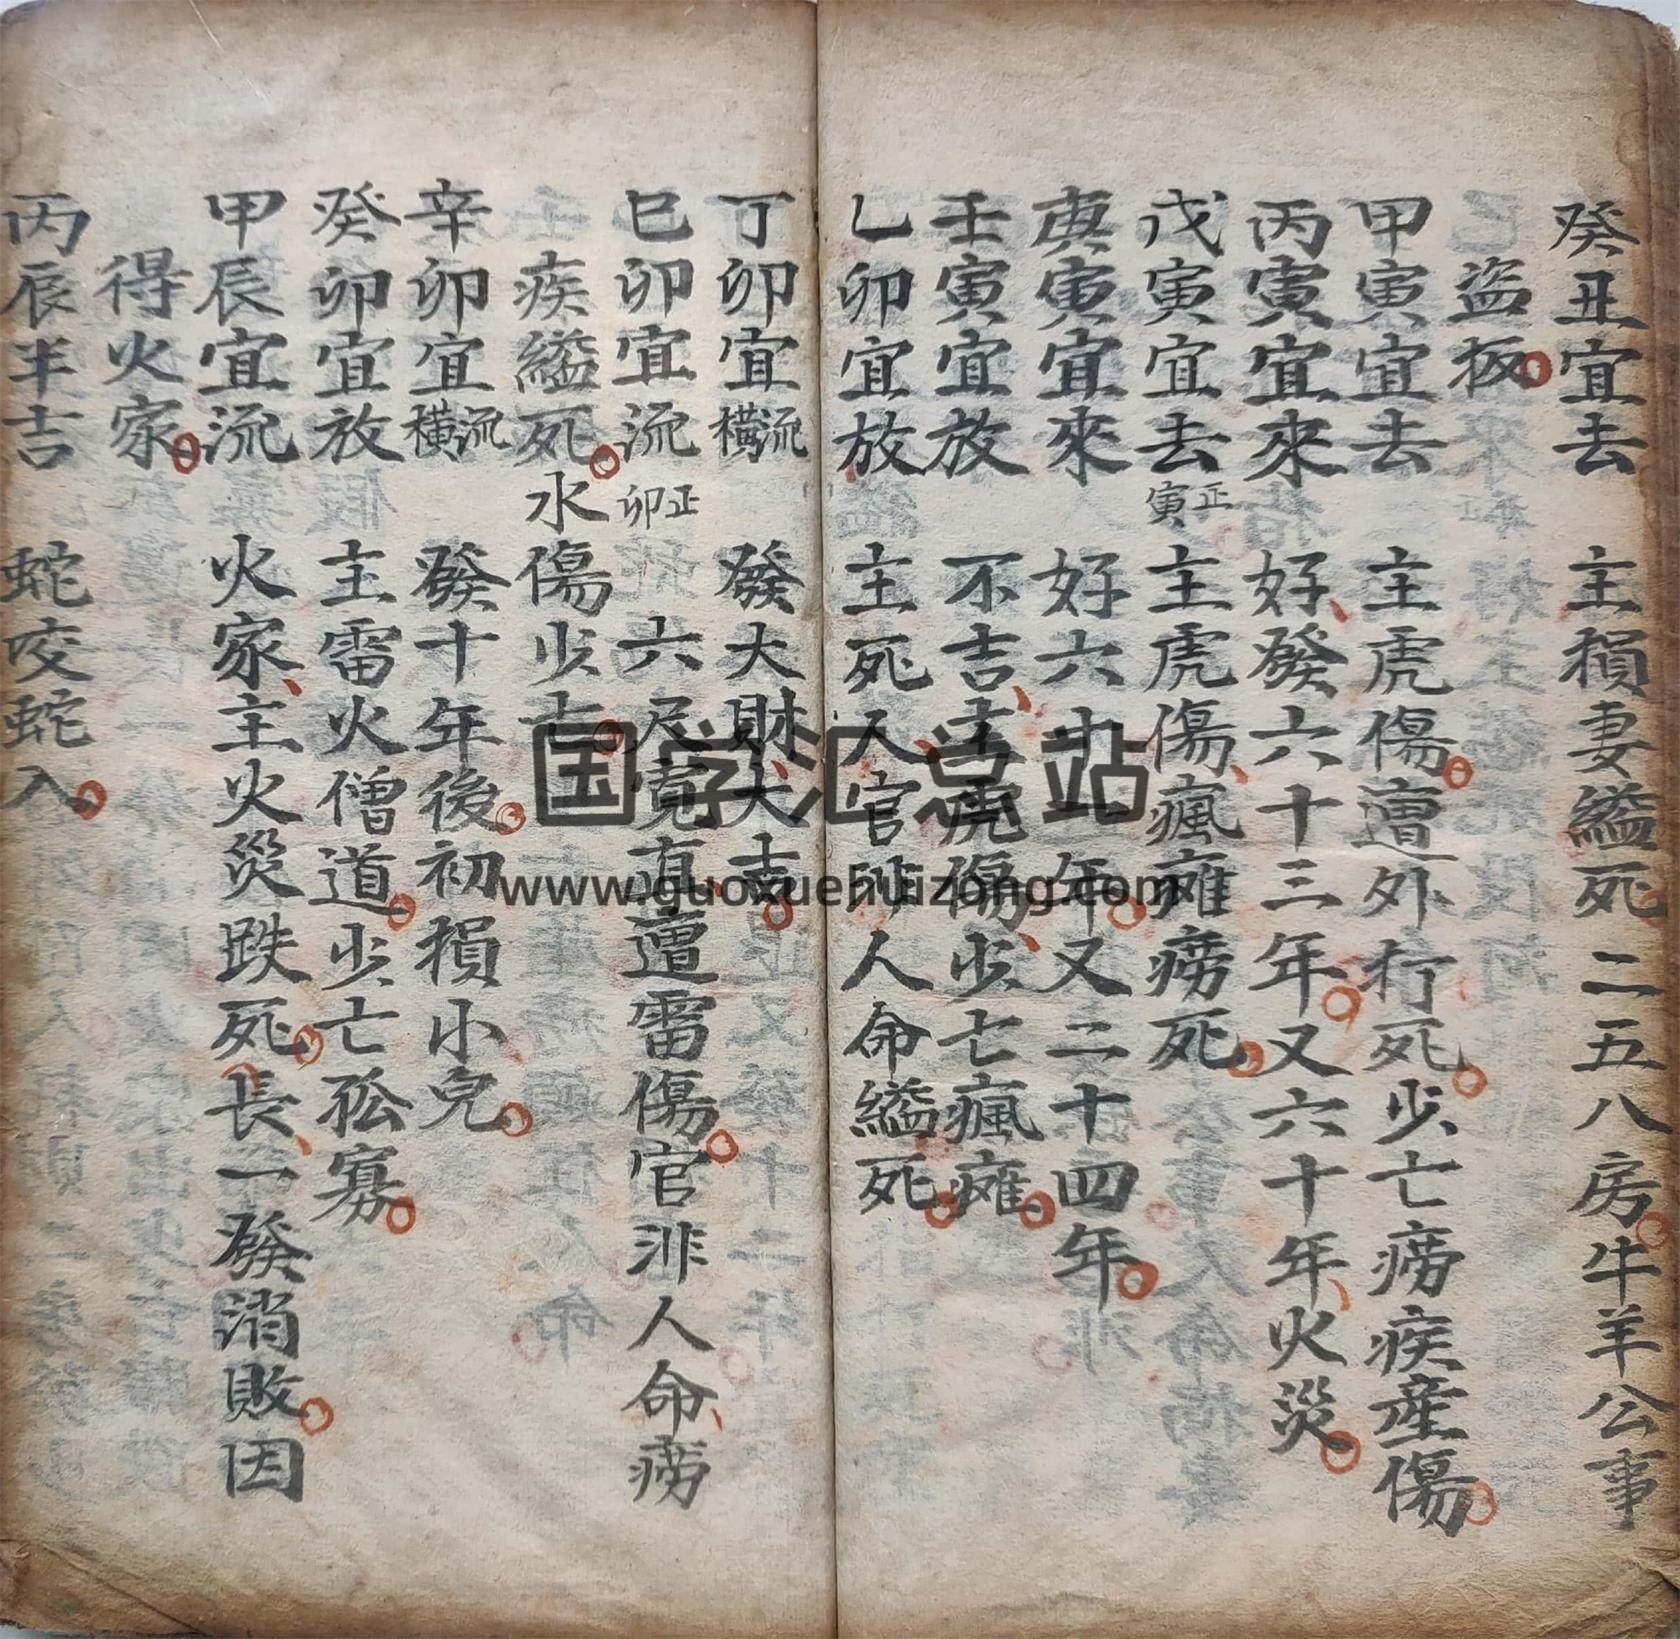 癸丑宜去 主損妻縊死二五八房牛羊公事
盜板
甲寅宜去 主虎傷遭外行死少亡癆疾產傷
丙寅宜來 好發六十三年又六十年火災
戊寅宜去正寅 主虎傷瘋癱癆死
庚寅宜來 好六十一年又二十四年
壬寅宜放 不吉主虎傷少亡瘋癱
乙卯宜放 主死人官非人命縊死
丁卯宜橫流 發大財大吉
巳卯宜流正卯 六尺寬直遭雷傷官非人命癆
疾縊死水傷少亡
辛卯宜橫流 發十年後初損小兒
癸卯宜放 主雷火僧道少亡孤寡
甲辰宜流 火家主火災跌死長一發消敗因
得火家
丙辰半吉 蛇咬蛇入
国学汇总站
www.guoxuehuizong.com